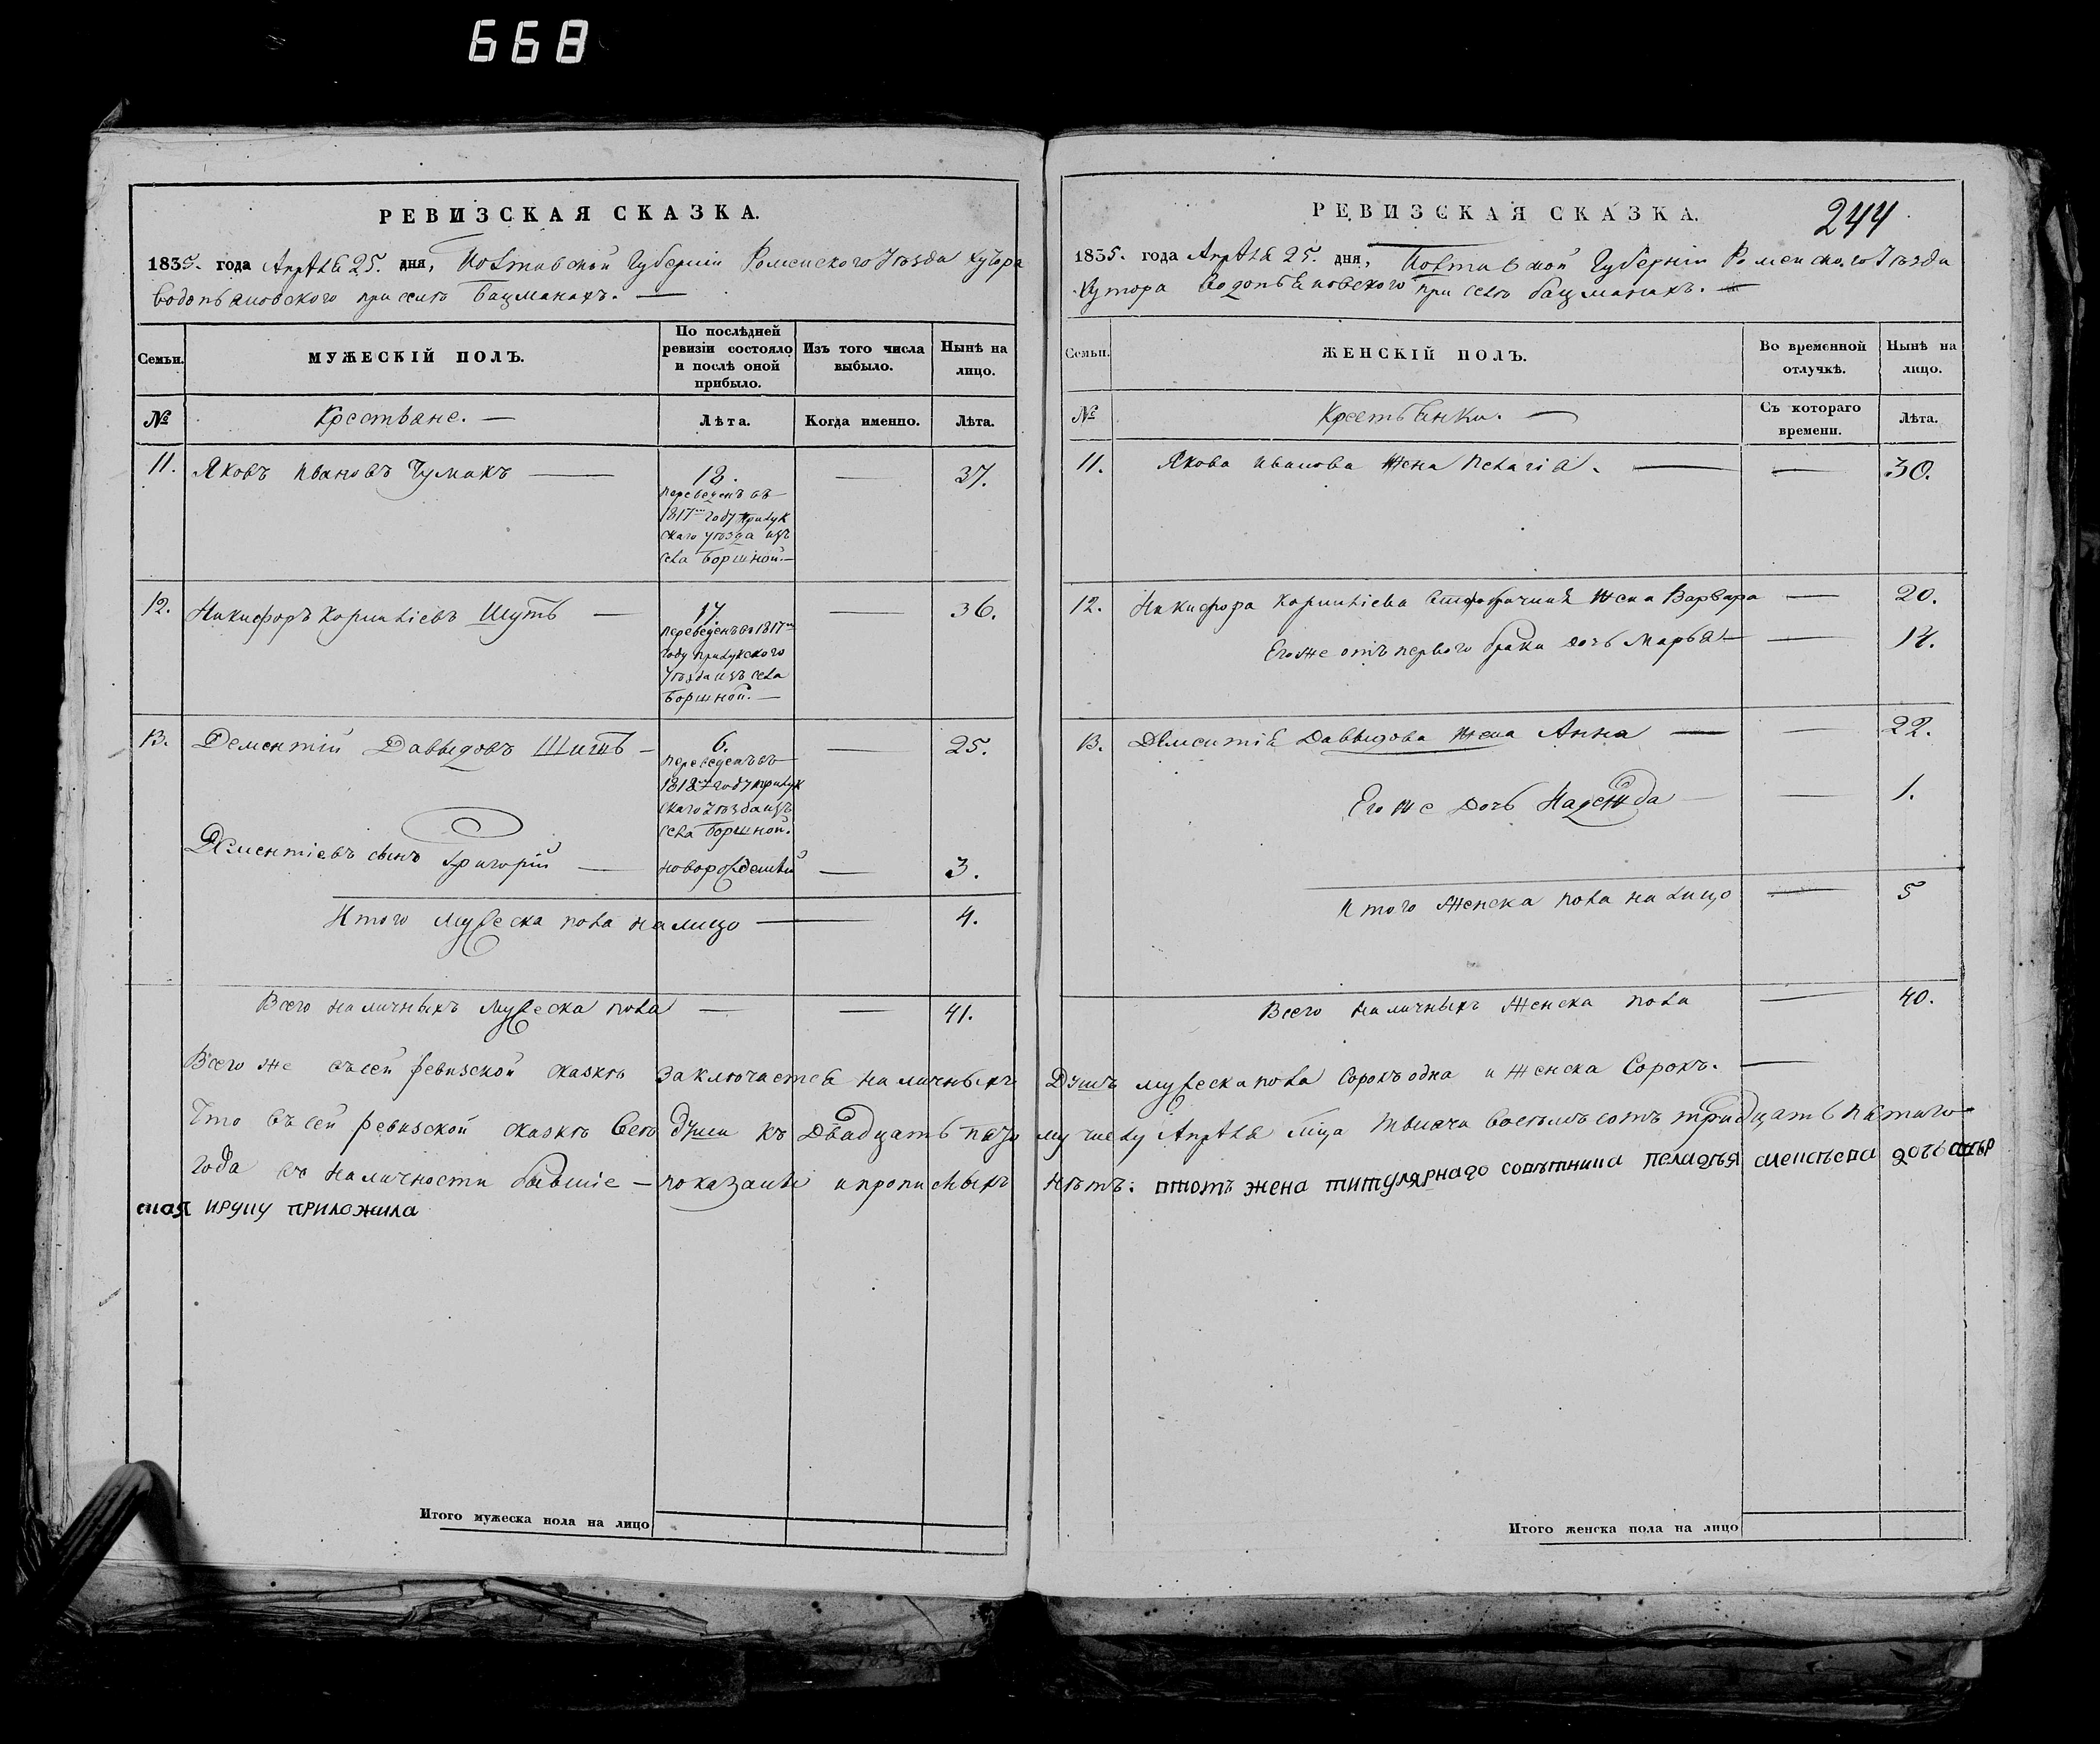 668
РЕВИЗСКАЯ СКАЗКА.
1835. года Апрѣля 25. дня, Полтавской Губерніи Роменского Уѣзда хутора
Водопьяновского при селѣ Бацманахъ. —
Семьи.
МУЖЕСКІЙ ПОЛЪ.
По послѣдней ревизіи состояло и послѣ оной прибыло.
Изъ того числа выбыло.
Нынѣ на лицо.
№
Крестьяне. —
Лѣта.
Когда именно.
Лѣта.
11. Яковъ Ивановъ Чумакъ — 18. — 37.
переведенъ въ
1817м году Прилук
скаго уѣзда изъ
села Боршной. —
12. Никифоръ Корниліевъ Шуть — 17. — 36.
переведенъ въ 1817м
году Прилукского
Уѣзда изъ села
Боршной. —
13. Дементій Давыдовъ Шить — 6. — 25.
переведенъ въ
1818м году Прилук
скаго Уѣзда изъ
села Боршной.
Дементіевъ сынъ Григорій — новорожденный — 3.
Итого мужеска пола на лицо — 4.
Всего наличныхъ мужеска пола — — 41.
Всего же въ сей ревизской сказкѣ заключается наличныхъ
Что въ сей ревизской сказкѣ всѣ души къ двадцать пято
года въ наличности бывшіе — показаны и прописныхъ
ская ируку приложила
Итого мужеска пола на лицо
РЕВИЗСКАЯ СКАЗКА.
244
1835. года Апрѣля 25. дня, Полтавской Губерніи Роменского Уѣзда
Хутора Водопьяновского при селѣ Бацманахъ. —
Семьи.
ЖЕНСКІЙ ПОЛЪ.
Во временной отлучкѣ.
Нынѣ на лицо.
№
Крестьянки. —
Съ котораго времени.
Лѣта.
11. Якова Иванова жена Пелагія. — — 30.
12. Никифора Корниліева жена Варвара — 20.
Его же отъ первого брака дочь Марья — — 14.
13. Дементія Давыдова жена Анна — — 22.
Его же дочь Надежда — — 1.
Итого женска пола на лицо — 5
Всего наличныхъ женска пола — 40.
Душъ мужеска пола сорокъ одна и женска Сорокъ. —
му числу Апрѣля мца тысяча восемьсотъ тридцать пятаго
нѣтъ: птомъ жена титулярнаго совѣтника пелагѣя дочь
Итого женска пола на лицо